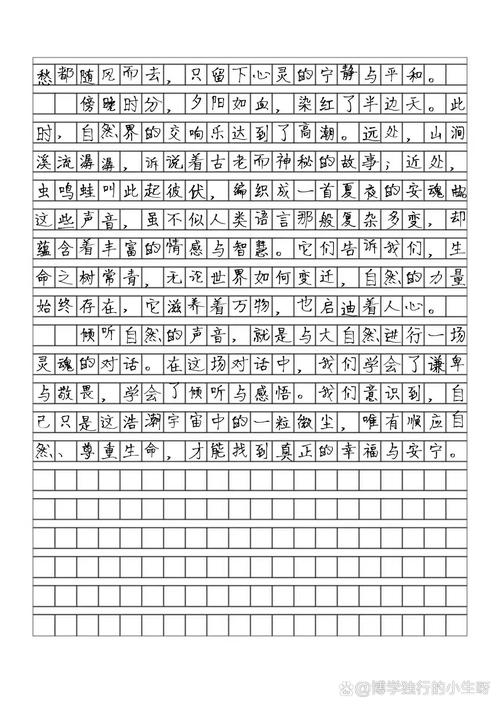 愁都随风而去，只留下心灵的宁静与平和。
傍晚时分，夕阳如血，染红了半边天。此
时，自然界的交响乐达到了高潮。远处，山涧
溪流潺潺，诉说着古老而神秘的故事；近处，
虫鸣蛙叫此起彼伏，编织成一首夏夜的安魂曲
这些声音，虽不似人类语言那般复杂多变，却
蕴含着丰富的情感与智慧。它们告诉我们，生
命之树常青，无论世界如何变迁，自然的力量
始终存在，它滋养着万物，也启迪着人心。
倾听自然的声音，就是与大自然进行一场
灵魂的对话。在这场对话中，我们学会了谦卑
与敬畏，学会了倾听与感悟。我们意识到，自
己只是这浩瀚宇宙中的一粒微尘，唯有顺应自
然、尊重生命，才能找到真正的幸福与安宁。
@博学独行的小生呀